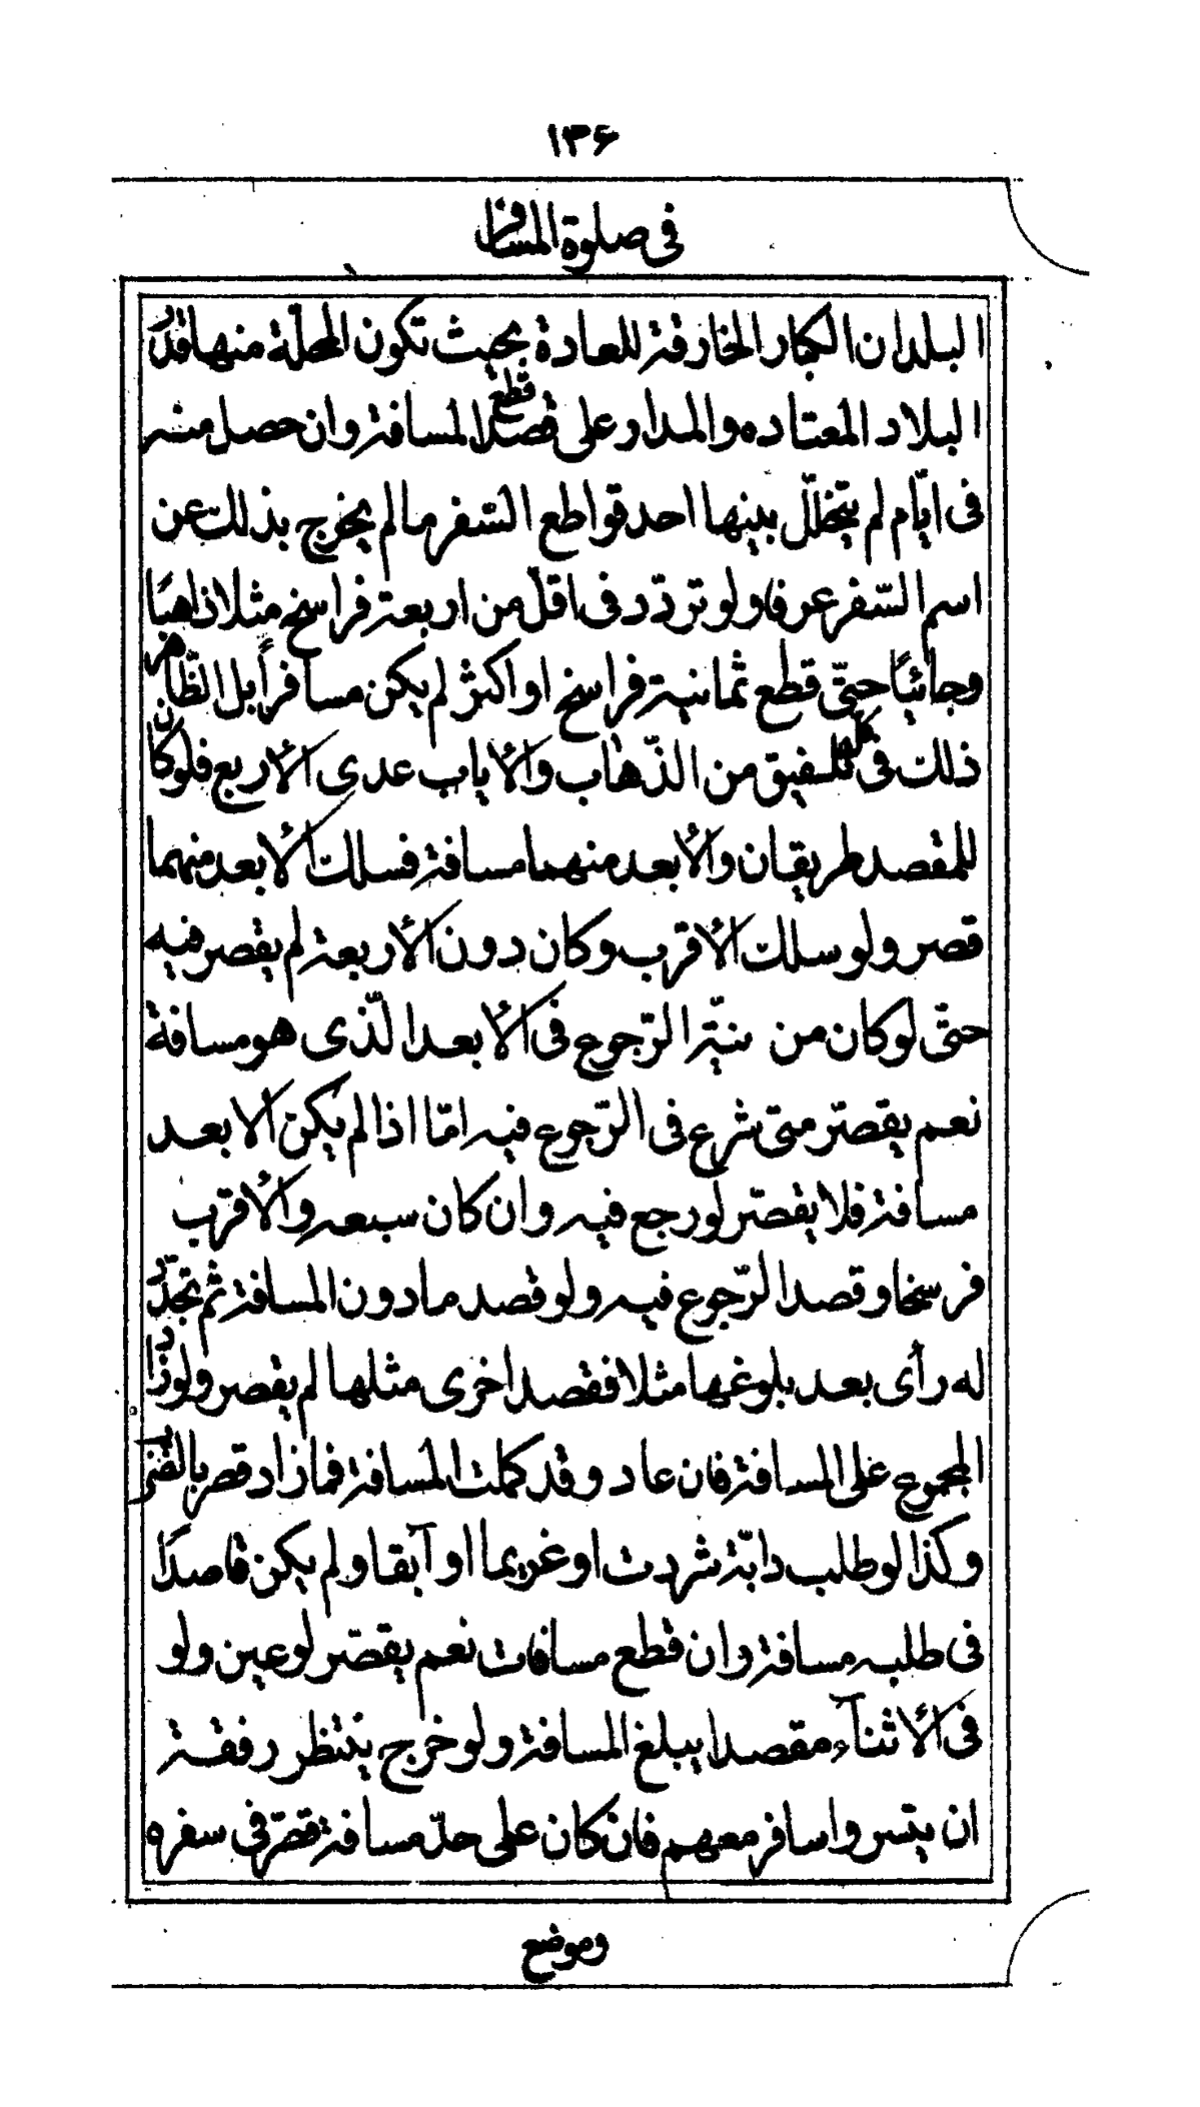 ۱۳۶
فی صلوة المسافر
البلدان الکبار الخارقة للعادة بحیث تکون المحلّة منها قدر
البلاد المعتاده والمدار علی قصد قطع المسافة وان حصل منه
فی ایّام لم یتخلّل بینها احد قواطع السّفر ما لم یخرج بذلک عن
اسم السّفر عرفا ولو تردّد فی اقلّ من اربعة فراسخ مثلا ذاهبًا
وجائیًا حتّی قطع ثمانیة فراسخ او اکثر لم یکن مسافراً بل الظّاهر
ذلک فی التلفیق من الذّهاب والأیاب عدی الأربع فلو کان
للمقصد طریقان والأبعد منهما مسافة فسلک الأبعد منهما
قصر ولو سلک الأقرب وکان دون الأربعة لم یقصر فیه
حتّی لو کان من نیّته الرّجوع فی الأبعد الّذی هو مسافة
نعم یقصّر متی شرع فی الرّجوع فیه امّا اذا لم یکن الابعد
مسافة فلا یقصّر لو رجع فیه وان کان سبعه والأقرب
فرسخا وقصد الرّجوع فیه ولو قصد ما دون المسافة ثم تجدّد
له رأی بعد بلوغها مثلا فقصد اخری مثلها لم یقصر ولو زاد
المجموع علی المسافة فان عاد وقد کملت المسافة فما زاد قصر
وکذا لو طلب دابّة شردت او غریما او آبقا ولم یکن قاصدًا
فی طلبه مسافة وان قطع مسافات نعم یقصّر لو عین ولو
فی الأثنآء مقصدا یبلغ المسافة ولو خرج ینتظر رفقة
ان یتسروا سافر معهم فان کان علی حدّ مسافة قصّر فی سفره
وموضع